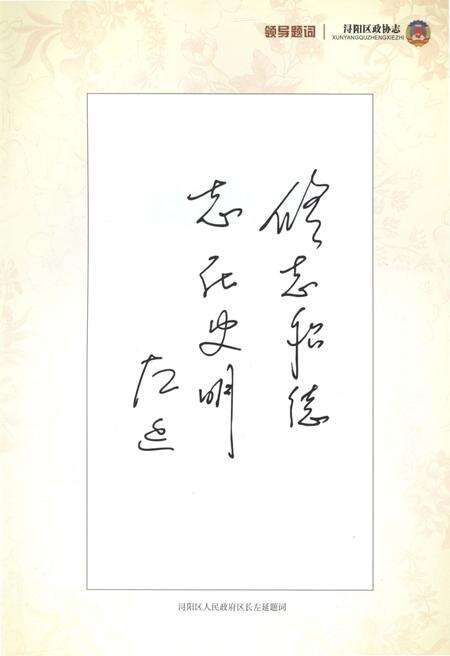 领导题词
浔阳区政协志
XUNYANGQUZHENGXIEZHI
修志 德
志 史明
左延
浔阳区人民政府区长左延题词